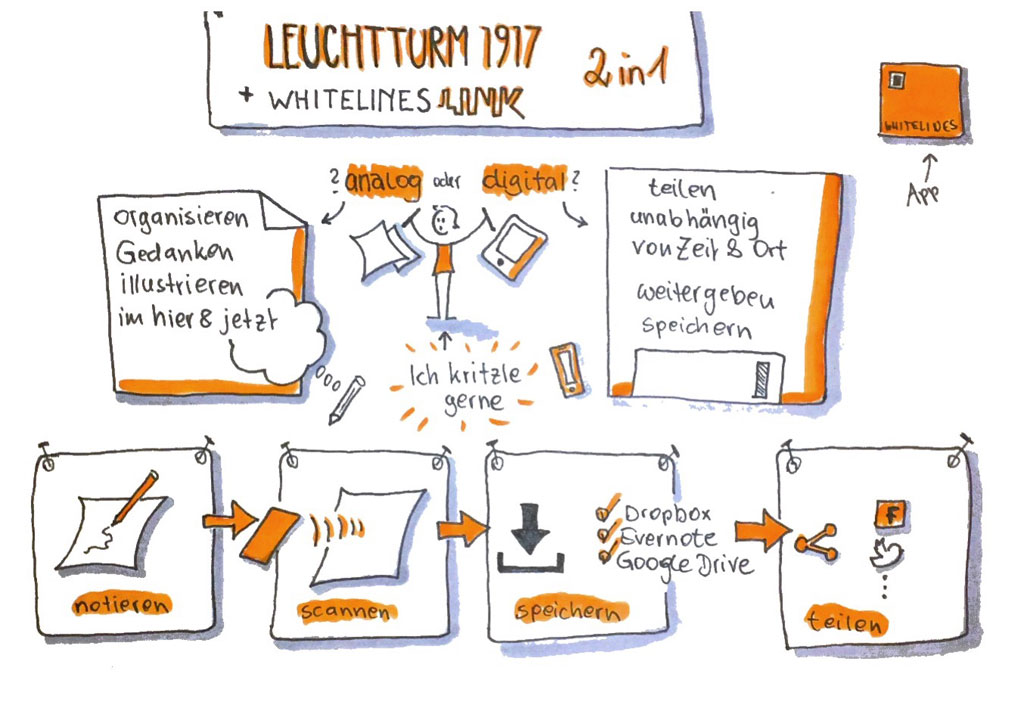 LEUCHTTURM 1917
+ WHITELINES LINK
2 in 1
WHITELINES
App
? analog oder digital?
organisieren
Gedanken
illustrieren
im hier & jetzt
teilen
unabhängig
von Zeit & Ort
weitergeben
speichern
Ich kritzle
gerne
notieren
scannen
Dropbox
Evernote
Google Drive
speichern
f
teilen